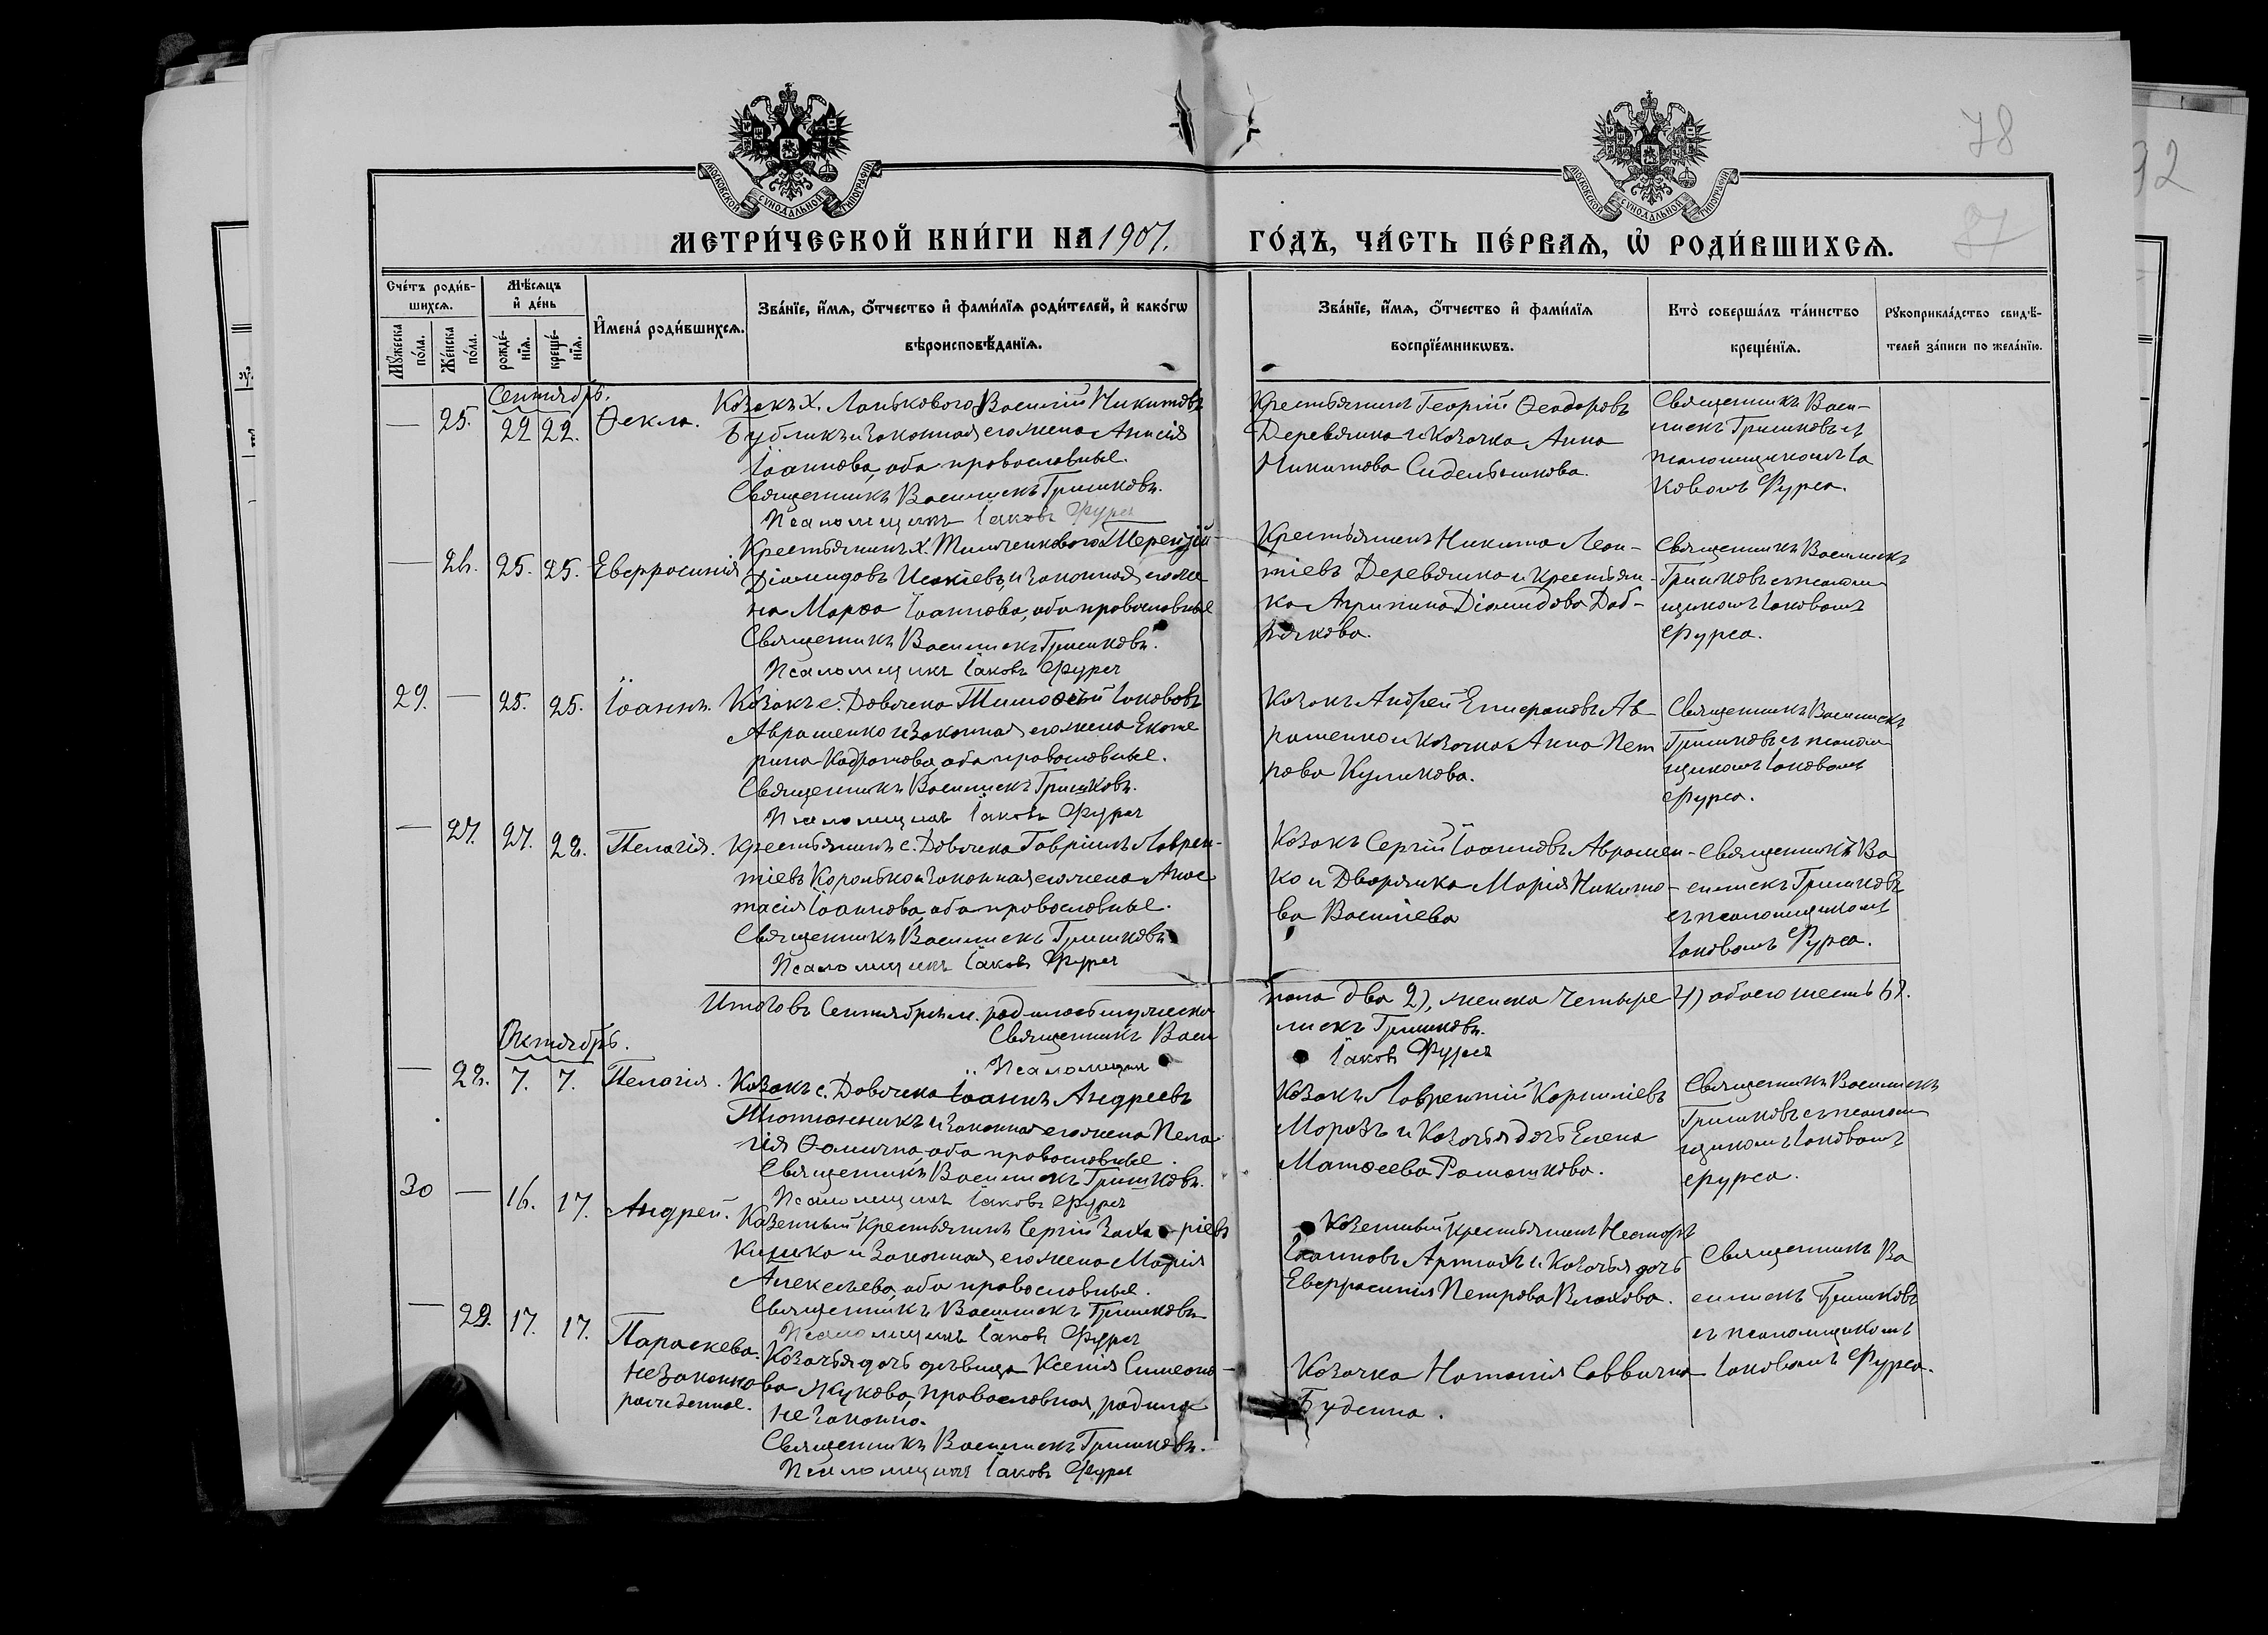 78
92
87
МОСКОВСКОЙ СѴНОДАЛЬНОЙ ТИПОГРАФІИ
МОСКОВСКОЙ СѴНОДАЛЬНОЙ ТИПОГРАФІИ
МЕТРИ́ЧЕСКОЙ КНИ́ГИ НА 1907.
ГО́ДЪ, ЧА́СТЬ ПЕ́РВАЯ, Ѡ҆ РОДИ́ВШИХСЯ.
Сче́тъ роди́в-
шихся.
Мѣ́сяцъ
и҆ де́нь
Мꙋ́жеска по́ла.
Же́нска по́ла.
рожде́-
нїя.
креще́-
нїя.
И҆мена̀ роди́вшихся.
Зва́нїе, и҆́мя, ѻ҆́тчество и҆ фами́лїя роди́телей, и҆ како́гѡ
вѣроисповѣ́данїя.
Зва́нїе, и҆́мя, ѻ҆́тчество и҆ фами́лїя
воспрїе́мникѡвъ.
Кто̀ соверша́лъ та́инство
креще́нїя.
Рꙋкоприкла́дство свидѣ́-
телей за́писи по жела́нїю.
Сентябрь.
— 25. 22 22. Ѳекла.
Козакъ х. Ланькового Василій Никитовъ
Бубликъ и законная его жена Анисія
Іоаннова, оба православные.
Священникъ Василискъ Гришковъ.
Псаломщикъ Іаковъ Фурса
Крестьянинъ Георгій Ѳеодоровъ
Деревянко и козачка Анна
Никитова Сидельникова.
Священникъ Васи-
лискъ Гришковъ съ
псаломщикомъ Іа
ковомъ Фурса.
— 26. 25. 25. Евфросинія
Крестьянинъ х. Тимченкового Терентій
Діомидовъ Исакіевъ и законная его же
на Марѳа Іоаннова, оба православные
Священникъ Василискъ Гришковъ.
Псаломщикъ Іаковъ Фурса
Крестьянинъ Никита Леон-
тіевъ Деревянко и крестьян-
ка Агрипина Діомидова Доб-
рякова.
Священникъ Василискъ
Гришковъ съ псалом
щикомъ Іаковомъ
Фурса.
29. — 25. 25. Іоаннъ.
Козакъ с. Довжка Тимоѳей Іакововъ
Аврашенко и законная его жена Екате
рина Кодратова, оба православные.
Священникъ Василискъ Гришковъ.
Псаломщикъ Іаковъ Фурса
Козакъ Андрей Епифановъ Ав-
рашенко и козачка Анна Пет
рова Куликова.
Священникъ Василискъ
Гришковъ съ псалом
щикомъ Іаковомъ
Фурса.
— 27. 27. 28. Пелагія.
Крестьянинъ с. Довжка Гавріилъ Лаврен-
тіевъ Коротько и законная его жена Анас
тасія Іоаннова, оба православные.
Священникъ Василискъ Гришковъ
Псаломщикъ Іаковъ Фурса
Козакъ Сергій Іоанновъ Аврашен-
ко и Дворянка Марія Никито-
ва Васильева
Священникъ Ва
силискъ Гришковъ
съ псаломщикомъ
Іаковомъ Фурса.
Итого въ Сентябрѣ м. родилось мужеска
пола два 2), женска четыре 4) обоего шесть 6).
Священникъ Васи
лискъ Гришковъ.
Псаломщикъ
Іаковъ Фурса
Октябрь.
— 28. 7. 7. Пелагія.
Козакъ с. Довжка Іоаннъ Андреевъ
Тютюнникъ и законная его жена Пела
гія Ѳомична, оба православные.
Священникъ Василискъ Гришковъ.
Псаломщикъ Іаковъ Фурса
Козакъ Лаврентій Корниліевъ
Морозъ и Козачья дочь Елена
Матѳеева Ромашкова.
Священникъ Василискъ
Гришковъ съ псалом
щикомъ Іаковомъ
Фурса.
30 — 16. 17. Андрей.
Казенный крестьянинъ Сергій Заха ріевъ
Кишка и законная его жена Марія
Алексѣева, оба православные.
Священникъ Василискъ Гришковъ
Псаломщикъ Іаковъ Фурса
Казенный крестьянинъ Несторъ
Іоанновъ Артюхъ и Козачья дочь
Евфросинія Петрова Влахова.
Священникъ Ва
силискъ Гришковъ
съ псаломщикомъ
Іаковомъ Фурса.
— 29. 17. 17. Параскева.
незаконно
рожденная.
Козачья дочь дѣвица Ксенія Симеоно-
ва Жукова, православная, родила
незаконно.
Священникъ Василискъ Гришковъ.
Псаломщикъ Іаковъ Фурса
Козачка Наталія Саввична
Буденна.